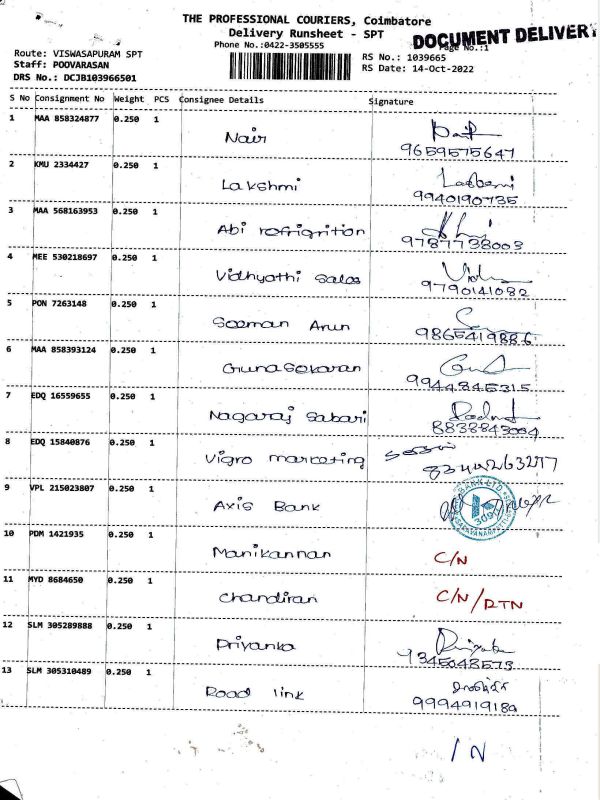 THE PROFESSIONAL COURIERS, Coimbatore
Delivery Runsheet - SPT
DOCUMENT DELIVERY
Phone No.:0422-3505555
Page No.:1
Route: VISWASAPURAM SPT
Staff: POOVARASAN
DRS No.: DCJB103966501
RS No.: 1039665
RS Date: 14-Oct-2022
S No Consignment No Weight PCS Consignee Details Signature
1 MAA 858324877 0.250 1 Nair
9659575647
2 KMU 2334427 0.250 1 Lakshmi
9940190735
3 MAA 568163953 0.250 1 Abi refrigrition
9787738003
4 MEE 530218697 0.250 1 Vidhyathi Salas
9790141082
5 PON 7263148 0.250 1 Seeman Arun
9865419886
6 MAA 858393124 0.250 1 Gunasekaran
9944845315
7 EDQ 16559655 0.250 1 Nagaraj Sabari
8838843004
8 EDQ 15840876 0.250 1 Vigro marketing
9 VPL 215023807 0.250 1 Axis Bank
10 PDM 1421935 0.250 1 Manikannan C/N
11 MYD 8684650 0.250 1 Chandiran C/N/RTN
12 SLM 305289888 0.250 1 Priyanka
9345048573
13 SLM 305310489 0.250 1 Road link
9994919189
IN